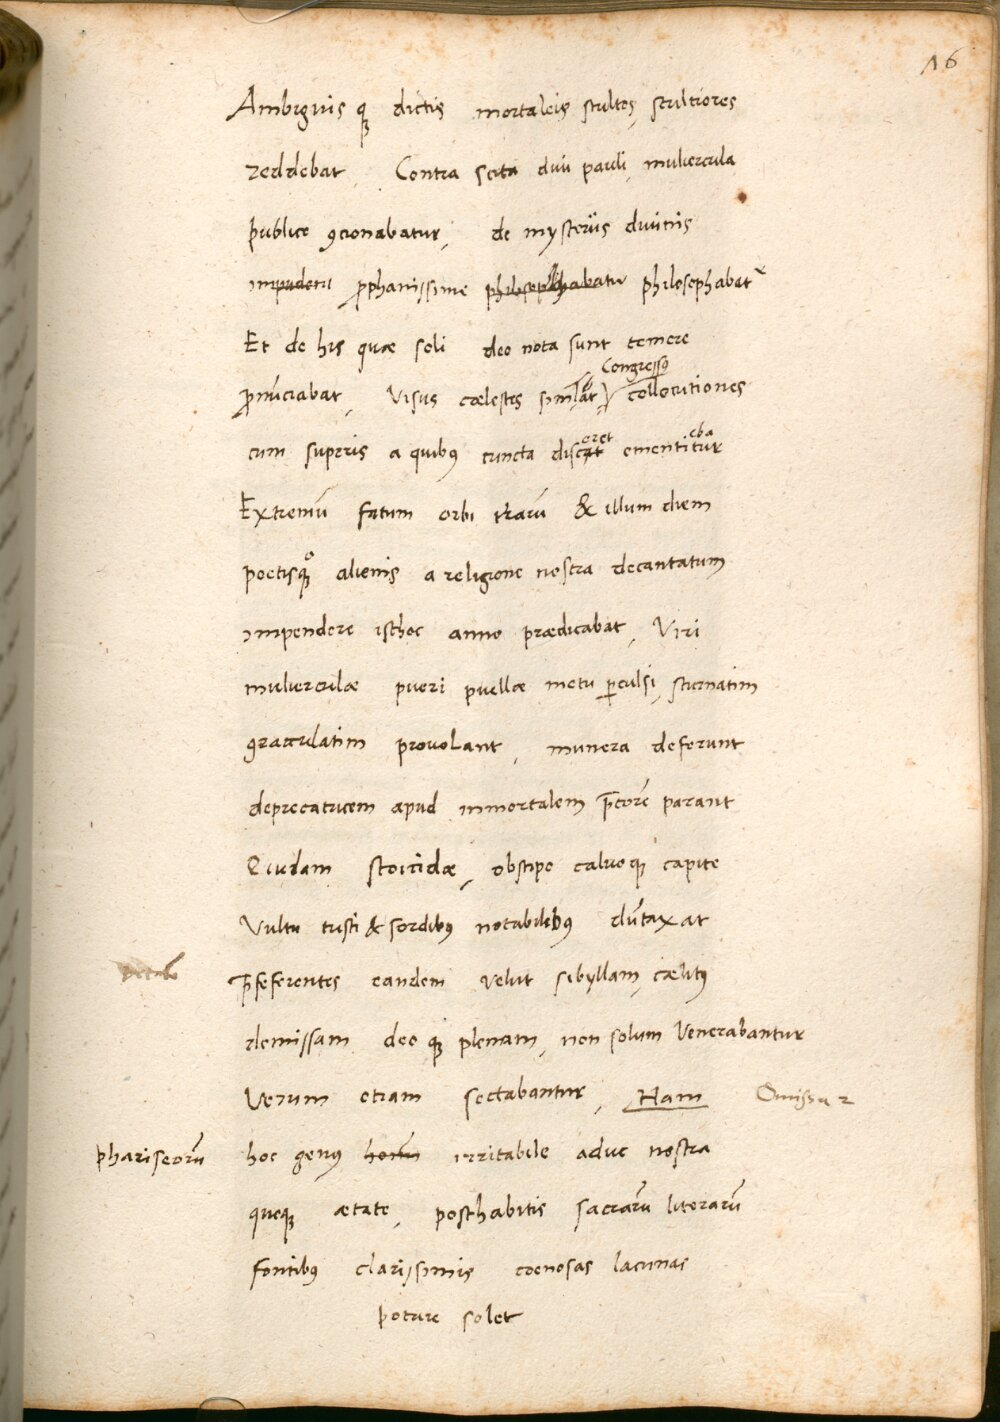 16
Ambiguis q; dictis mortaleis stultos, stultiores
reddebat, Contra scita diui pauli, muliercula
publice 9cionabatur, de mysteriis diuinis
impudenti prophanissime philosophabatur philosophabat
Et de his quæ soli deo nota sunt temere
Congressus
pronūciabat, Visus cælestes simulat collocutiones
eret eba
cum superis a quibus cuncta discat ementitur
Extremū fatum orbi & illum diem
poetisq; alienis a religione nostra decantatum
impendere isthoc anno prædicabat, Viri
mulierculæ pueri puellæ metu perculsi, sturnatim
graculatim prouolant, munera deferunt
deprecatricem apud immortalem parant
Quidam stoicidæ, obstipo caluoq; capite
Vultu tristi & sordibus notabilibus dūtaxat
præseferentes eandem velut sibyllam, cælitus
demissam deo q; plenam, non solum Venerabantur
Verum etiam sectabantur, Nam
phariseorū
hoc genus homī irritabile aduc nostra
quoq; ætate, posthabitis sacrarū literarū
fontibus clarissimis coenosas lacunas
potare solet